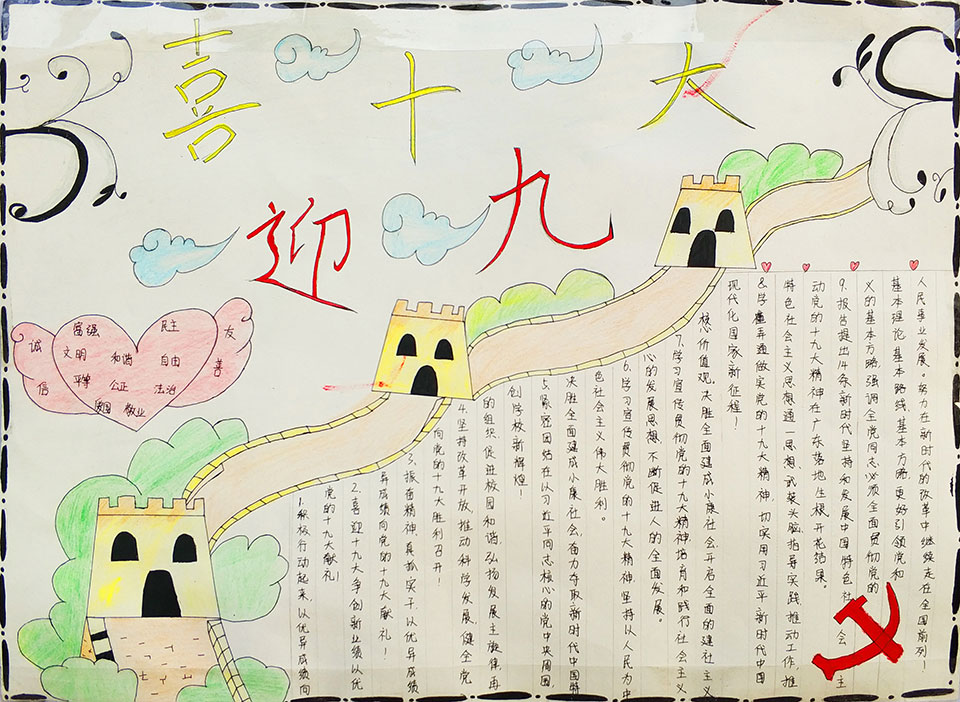 喜十大
迎九
富强 民主
文明 和谐 自由
平等 公正 法治
爱国 敬业
诚
信
友
善
1.积极行动起来,以优异成绩向
党的十九大献礼!
2.喜迎十九大争创新业绩以优
异成绩向党的十九大献礼!
3.振奋精神,真抓实干以优异成绩
向党的十九大胜利召开!
4.坚持改革开放推动科学发展,健全党
的组织,促进校园和谐弘扬发展主旋律再
创学校新辉煌!
5.紧密团结在以习近平同志核心的党中央周围
决胜全面建成小康社会,奋力夺取新时代中国特
色社会主义伟大胜利。
6.学习宣传贯彻党的十九大精神坚持以人民为中
心的发展思想,不断促进人的全面发展。
7.学习宣传贯彻党的十九大精神培育和践行社会主义
核心价值观。决胜全面建成小康社会开启全面的建社主义
现代化国家新征程!
8.学懂弄通做实党的十九大精神,切实用习近平新时代中国
特色社会主义思想通一思想、武装头脑,指导实践,推动工作,推
动党的十九大精神在广东落地生根开花结果。
9.报告提出14条新时代坚持和发展中国特色社会主
义的基本方略,强调全党同志必须全面贯彻党的
基本理论基本路线,基本方略,更好引领党和
人民事业发展。努力在新时代的改革中继续走在全国前列!